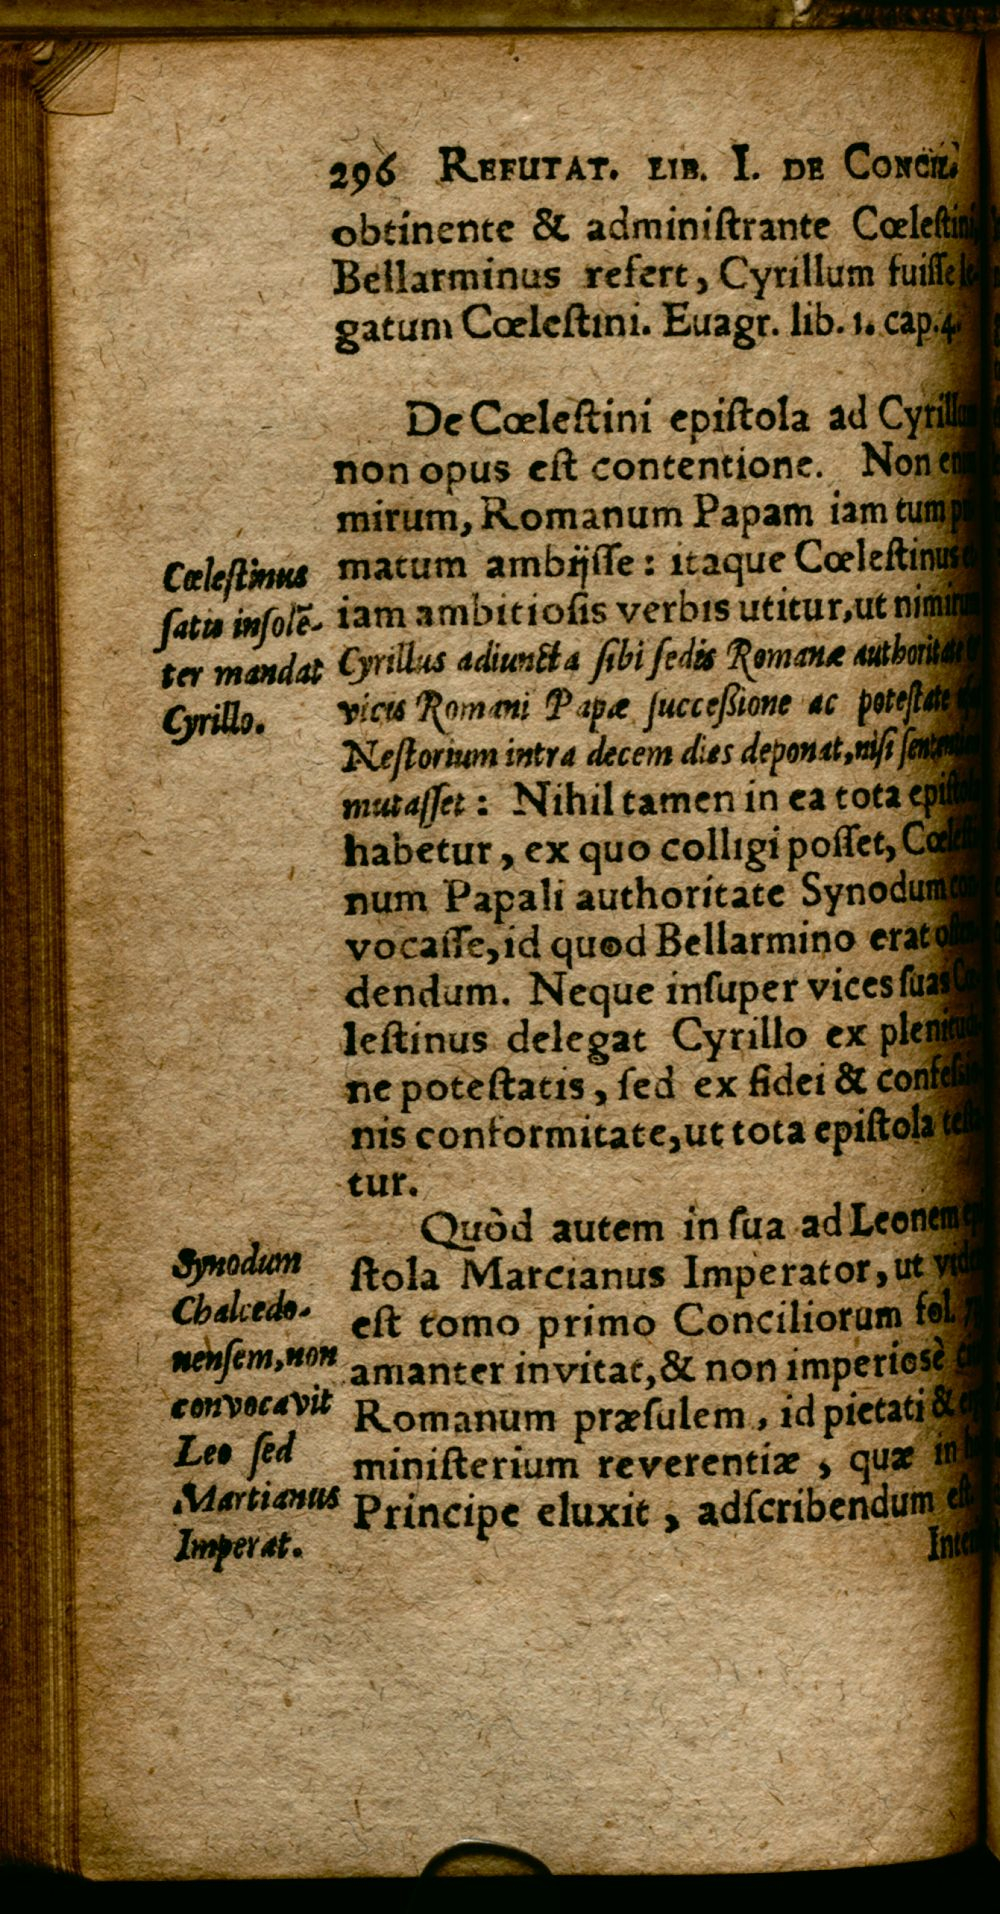 296 REFUTAT. LIB. I. DE CONCIL.
obtinente & adminiſtrante Cœleſtini,
Bellarminus refert, Cyrillum fuiſſe le-
gatum Cœleſtini. Euagr. lib. 1. cap. 4.
De Cœleſtini epiſtola ad Cyrillum
non opus eſt contentione. Non enim
mirum, Romanum Papam iam tum
matum ambijſſe: itaque Cœleſtinus
iam ambitioſis verbis utitur, ut nimirum
Cyrillus adiuncta ſibi ſedis Romanæ authoritate
vicis Romani Papæ ſucceßione ac poteſtate
Neſtorium intra decem dies deponat, niſi ſententiam
mutaſſet: Nihil tamen in ea tota epiſtola
habetur, ex quo colligi poſſet, Cœleſti-
num Papali authoritate Synodum con-
vocaſſe, id quod Bellarmino erat oſten-
dendum. Neque inſuper vices ſuas Cœ-
leſtinus delegat Cyrillo ex plenitudi-
ne poteſtatis, ſed ex fidei & confeſsio-
nis conformitate, ut tota epiſtola teſta-
tur.
Quòd autem in ſua ad Leonem epi-
ſtola Marcianus Imperator, ut
eſt tomo primo Conciliorum fol.
amanter invitat, & non imperiosè
Romanum præſulem, id pietati &
miniſterium reverentiæ, quæ in
Principe eluxit, adſcribendum eſt.
Cœleſtinus
ſatis inſolē-
ter mandat
Cyrillo.
Synodum
Chalcedo-
nenſem, non
convocavit
Leo ſed
Martianus
Imperat.